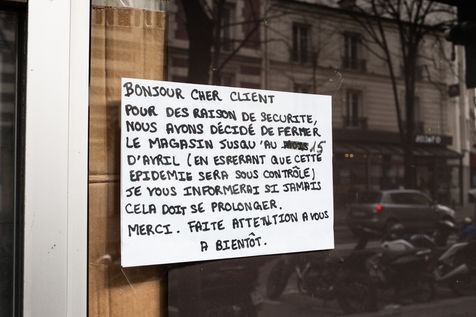 BONJOUR CHER CLIENT
POUR DES RAISON DE SECURITE,
NOUS AVONS DÉCIDÉ DE FERMER
LE MAGASIN JUSQU'AU 15
D'AVRIL (EN ESPERANT QUE CETTE
EPIDEMIE SERA SOUS CONTRÔLE)
JE VOUS INFORMERAI SI JAMAIS
CELA DOIT SE PROLONGER.
MERCI. FAITE ATTENTION A VOUS
A BIENTÔT.